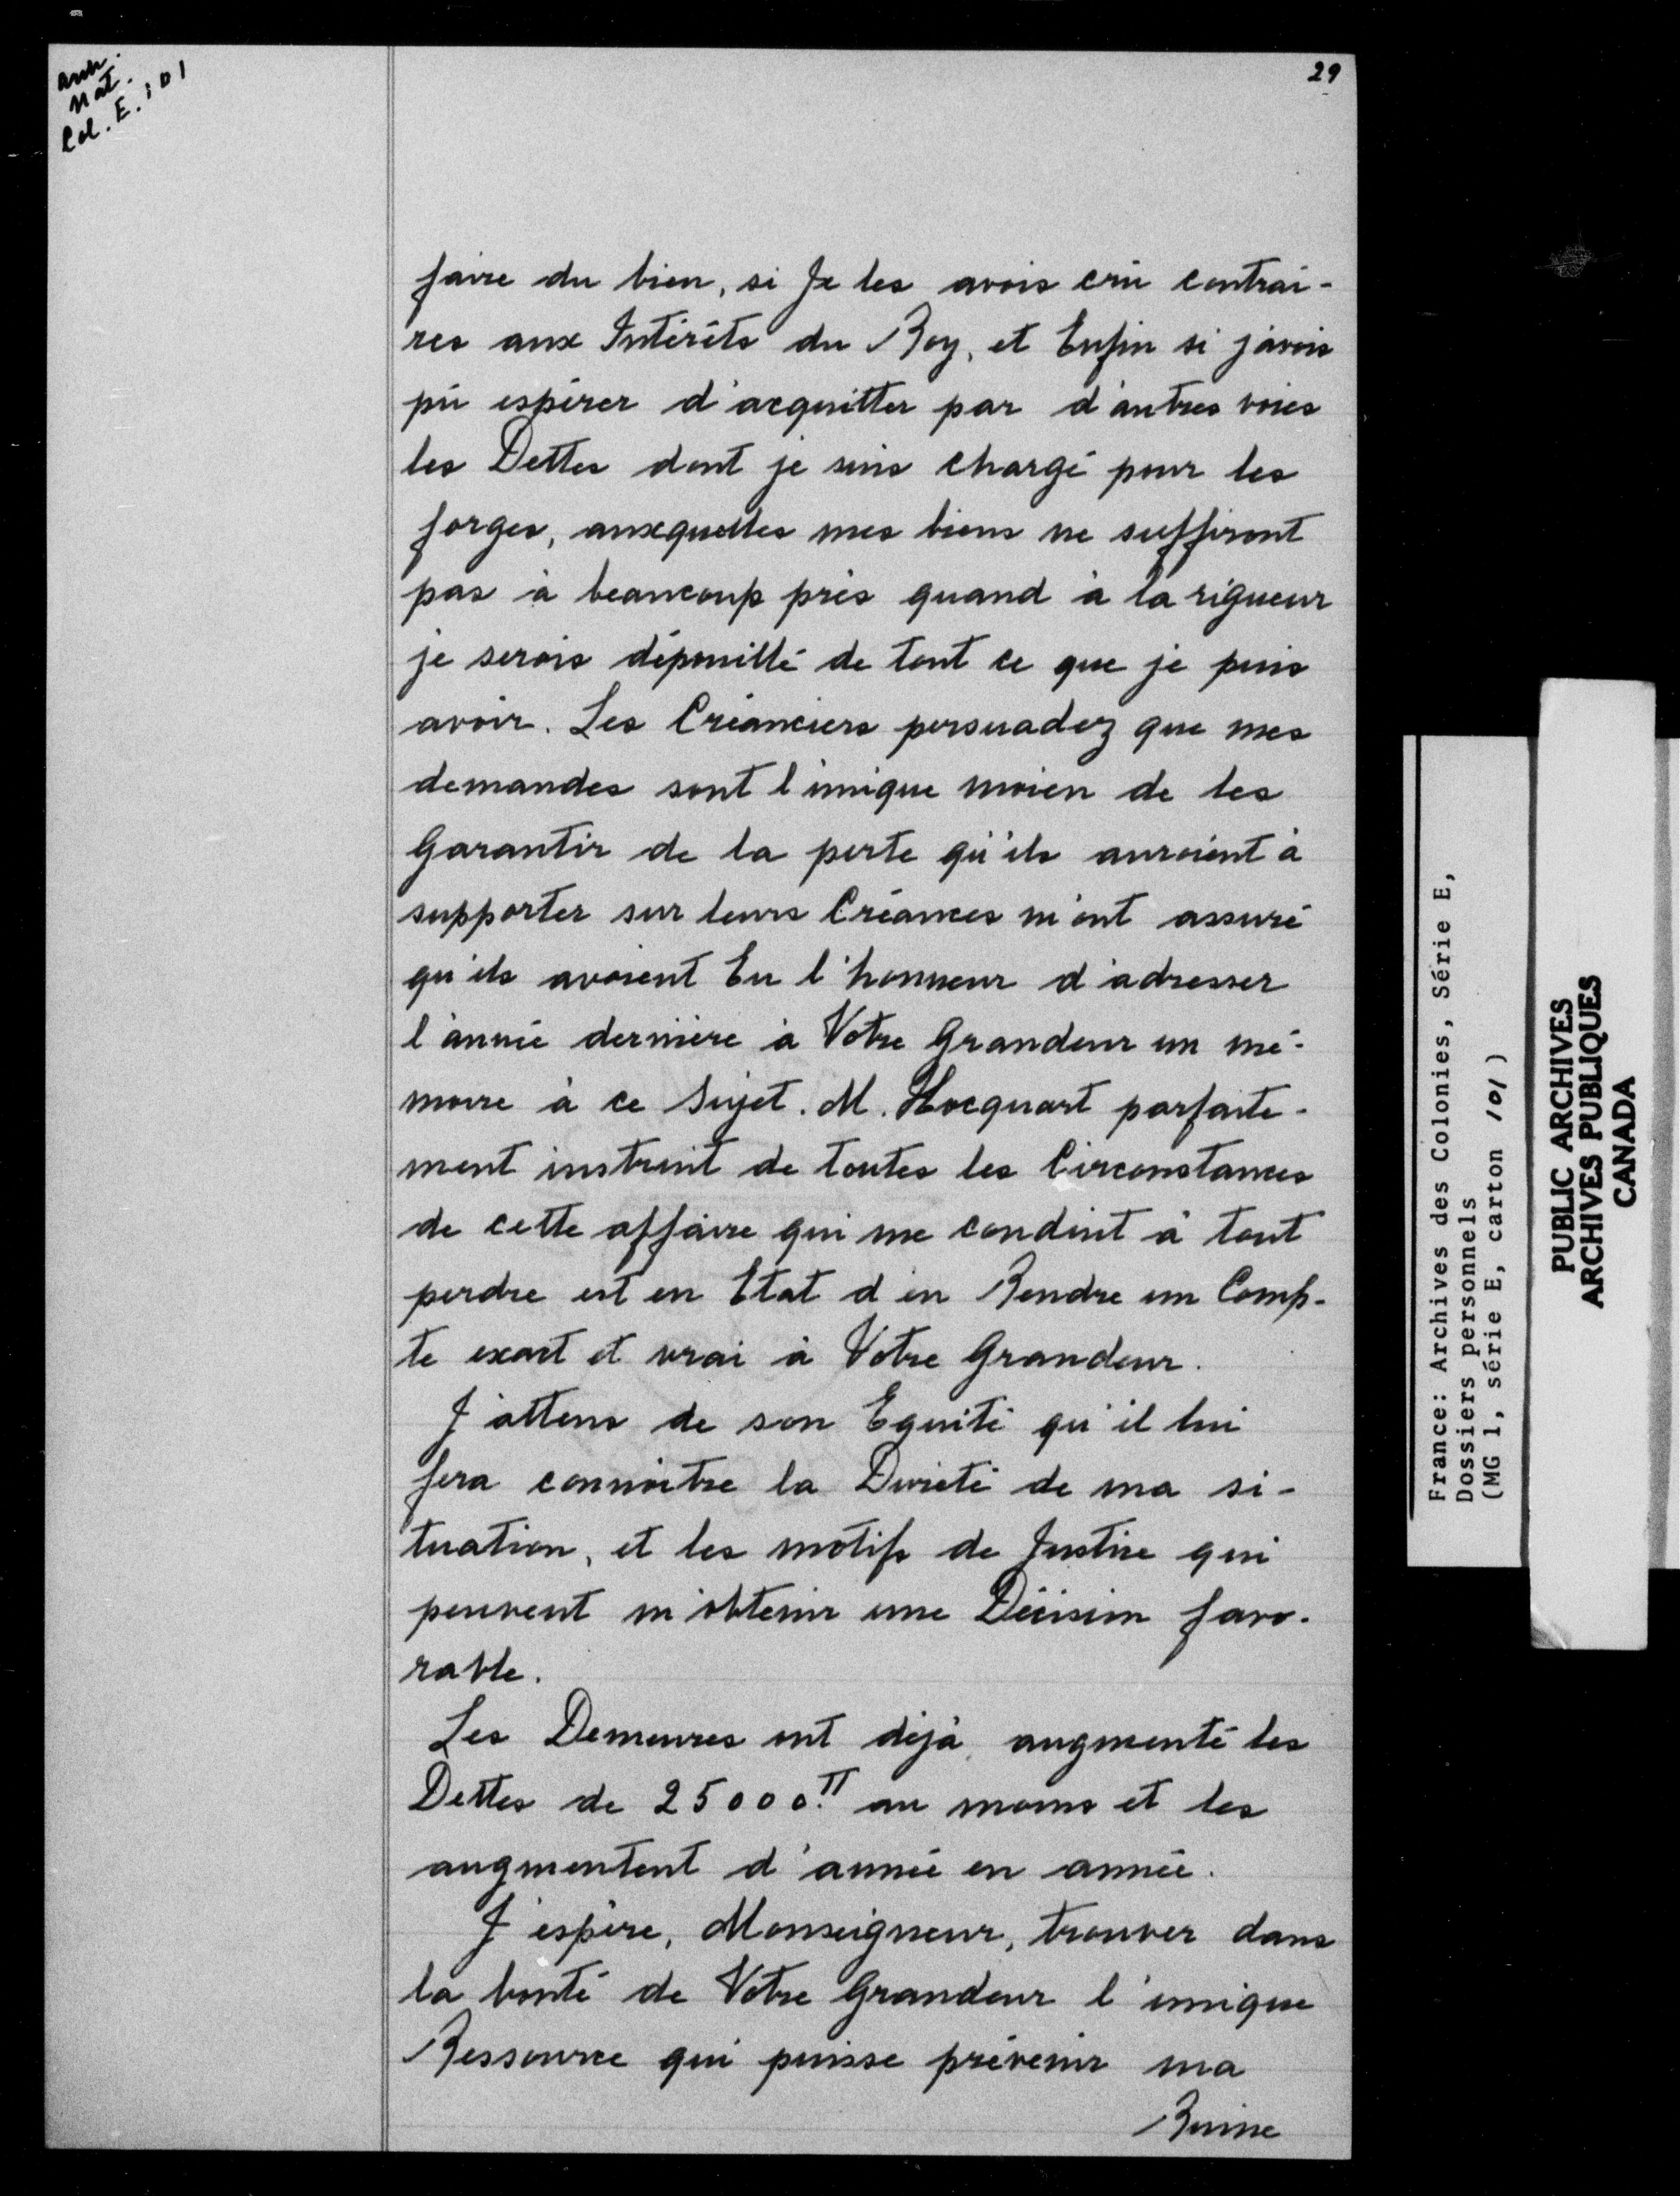 Arch.
Nat.
Col. E. 101
29
faire du bien, si Je les avois crû contrai-
res aux Intérêts du Roy, et Enfin si j'avois
pû espérer d'acquitter par d'autres voies
les Dettes dont je suis chargé pour les
forges, auxquelles mes biens ne suffiront
pas à beaucoup près quand à la rigueur
je serois dépouillé de tout ce que je puis
avoir. Les Créanciers persuadez que mes
demandes sont l'unique moien de les
Garantir de la perte qu'ils auroient à
supporter sur leurs Créances m'ont assuré
qu'ils avoient Eu l'honneur d'adresser
l'année dernière à Votre Grandeur un mé-
moire à ce Sujet. M. Hocquart parfaite-
ment instruit de toutes les Circonstances
de cette affaire qui me conduit à tout
perdre est en Etat d'en Rendre un Comp-
te exact et vrai à Votre Grandeur.
J'attens de son Equité qu'il lui
fera connoître la Dureté de ma si-
tuation, et les motifs de Justice qui
peuvent m'obtenir une Décision favo-
rable.
Les Demeures ont déjà augmenté les
Dettes de 25000.tt au moins et les
augmentent d'année en année.
J'espère, Monseigneur, trouver dans
la bonté de Votre Grandeur l'unique
Ressource qui puisse prévenir ma
Ruine
France: Archives des Colonies, Série E,
Dossiers personnels
(MG 1, série E, carton 101)
PUBLIC ARCHIVES
ARCHIVES PUBLIQUES
CANADA